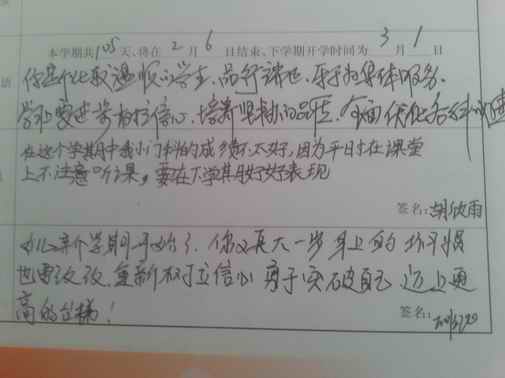 本学期共105天、将在2月6日结束、下学期开学时间为3月1日
你是个比较温顺的学生,品行端正,乐于为集体服务。
学习要进步树立信心,培养坚韧的品性。
在这个学期中我小门科的成绩不太好,因为平日才在课堂
上不注意听课,要在下学其月好好表现
签名:胡欣雨
新个学期开始了,你又长大一步身上的坏习惯
也要改改,重新树立信心勇于突破自己迈上更
高的台梯!
签名: